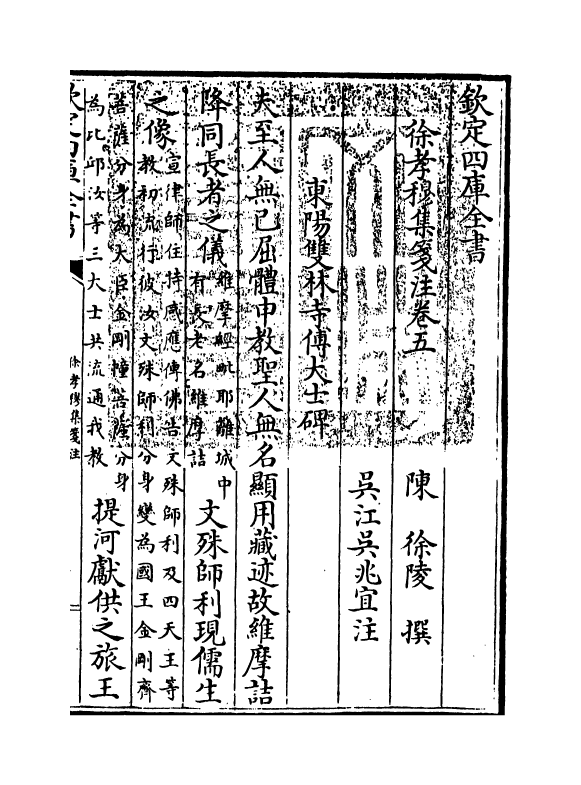 欽定四庫全書
徐孝穆集箋注卷五
陳　徐陵　撰
吳江吳兆宜注
東陽雙林寺傅大士碑
夫至人無已屈體申教聖人無名顯用藏迹故維摩詰
降同長者之儀維摩經毗耶離城中
有長老名維摩詰文殊師利現儒生
之像宣律師住持感應傳佛告文殊師利及四天王等
教初流行彼汝文殊師利分身變為國王金剛齊
菩薩分身為大臣金剛幢菩薩分身
為比邱汝等三大士共流通我教提河獻供之旅王
欽定四庫全書
徐孝穆集箋注